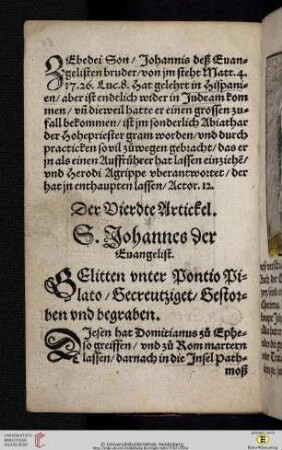 Zebedei Son / Johannis deß Euan-
gelisten bruder / von jm steht Matt. 4.
17. 26. Luc. 8. Hat gelehrt in Hispani-
en / aber ist endtlich wider in Judeam kom
men / vñ dieweil hatte er einen grossen zu-
fall bekommen / ist jm sonderlich Abiathar
der Hohepriester gram worden / vnd durch
practicken so vil zůwegen gebracht / das er
jn als einen Auffrührer hat lassen einziehē /
vnd Herodi Agrippe vberantwortet / der
hat jn enthaupten lassen / Actor. 12.
Der Vierdte Artickel.
S. Johannes der
Euangelist.
GElitten vnter Pontio Pi-
lato / Gecreutziget / Gestor-
ben vnd begraben.
DIesen hat Domitianus zů Ephe-
so greiffen / vnd zů Rom martern
lassen / darnach in die Insel Path-
moß
UNIVERSITÄTS-
BIBLIOTHEK
HEIDELBERG
© Universitätsbibliothek Heidelberg